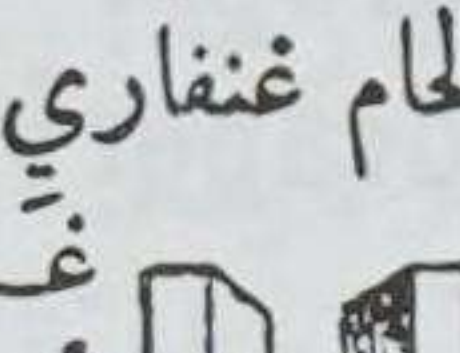 لحام غنفاري
غـ